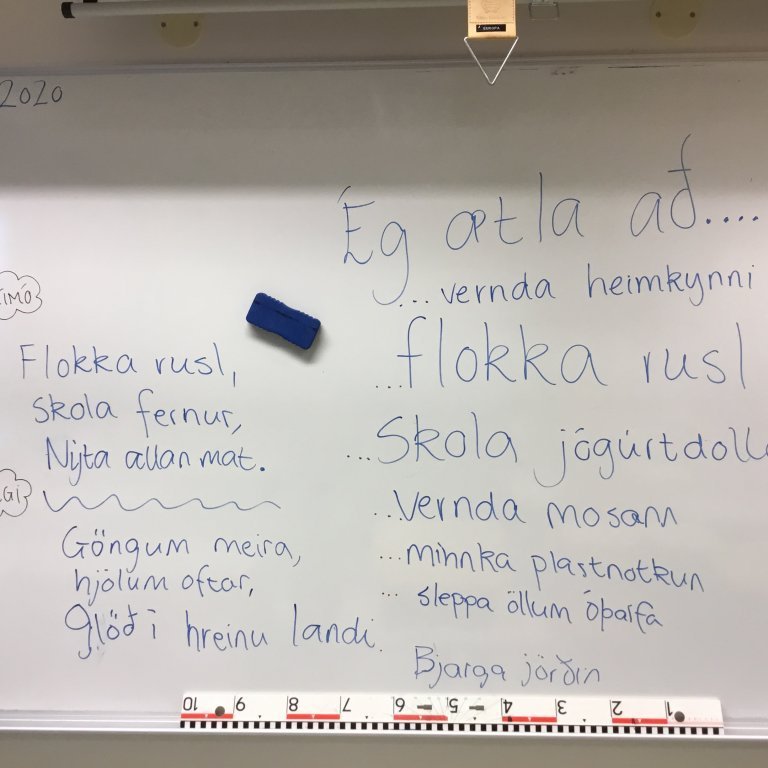 2020
Flokka rusl,
Skola fernur,
Nýta allan mat.
Göngum meira,
hjólum oftar,
glöð í hreinu landi.
Ég ætla að....
...vernda heimkynni
...flokka rusl
...Skola jógúrtdoll
...Vernda mosann
...minnka plastnotkun
... sleppa öllum óþarfa
Bjarga jörðin
10 9 8 7 6 5 4 3 2 1